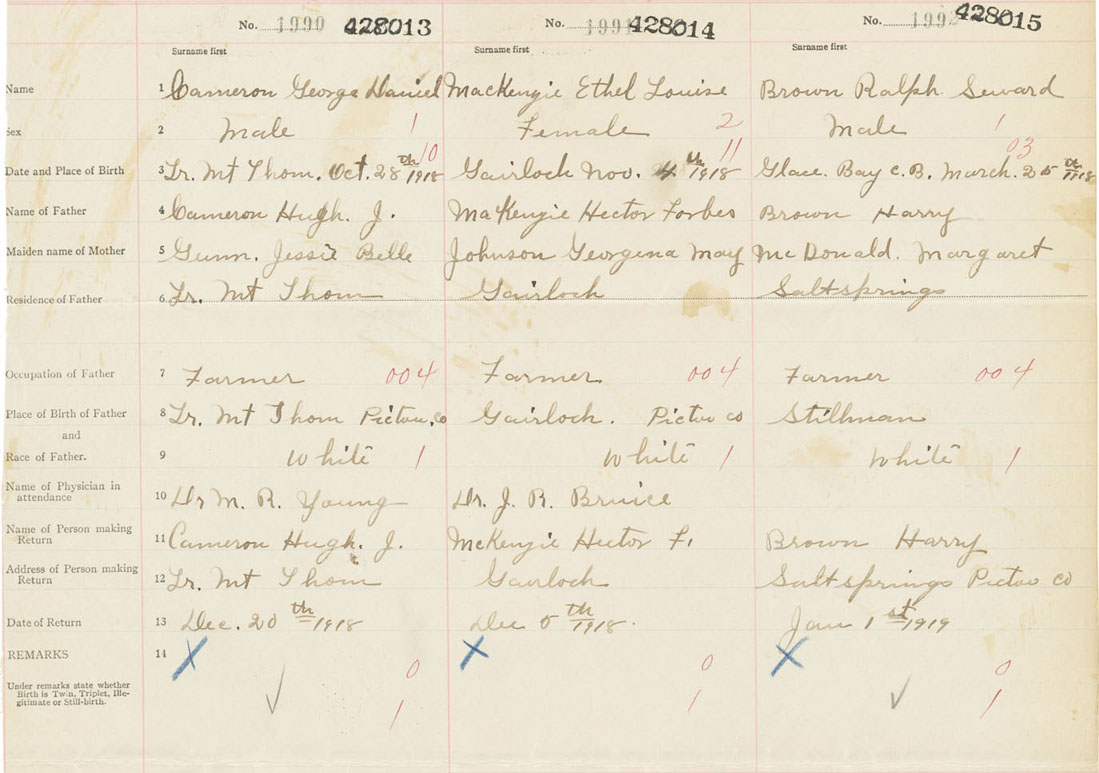 No. 1990 428013 No. 1991 428014 No. 1992 428015
Surname first Surname first Surname first
Name 1 Cameron George Daniel MacKenzie Ethel Louise Brown Ralph Seward
Sex 2 Male 1 Female 2 Male 1
10 11 03
Date and Place of Birth 3 Lr. Mt Thom. Oct. 28th 1918 Gairloch Nov. 4th 1918 Glace Bay C.B. March. 25th 1918
Name of Father 4 Cameron Hugh. J. MacKenzie Hector Forbes Brown Harry
Maiden name of Mother 5 Gunn. Jessie Belle Johnson Georgena May McDonald. Margaret
Residence of Father 6 Lr. Mt Thom Gairloch Saltsprings
Occupation of Father 7 Farmer 004 Farmer 004 Farmer 004
Place of Birth of Father 8 Lr. Mt Thom Pictou, co Gairloch. Pictou co Stillman
and
Race of Father. 9 White 1 White 1 White 1
Name of Physician in
attendance 10 Dr M. R. Young Dr. J. R. Bruice
Name of Person making
Return 11 Cameron Hugh. J. McKenzie Hector F. Brown Harry
Address of Person making
Return 12 Lr. Mt Thom Gairloch Saltsprings Pictou co
Date of Return 13 Dec. 20th 1918 Dec 5th 1918. Jan 1st 1919
REMARKS 14 X X X
0 0 0
Under remarks state whether
Birth is Twin, Triplet, Ille-
gitimate or Still-birth.
1 1 1